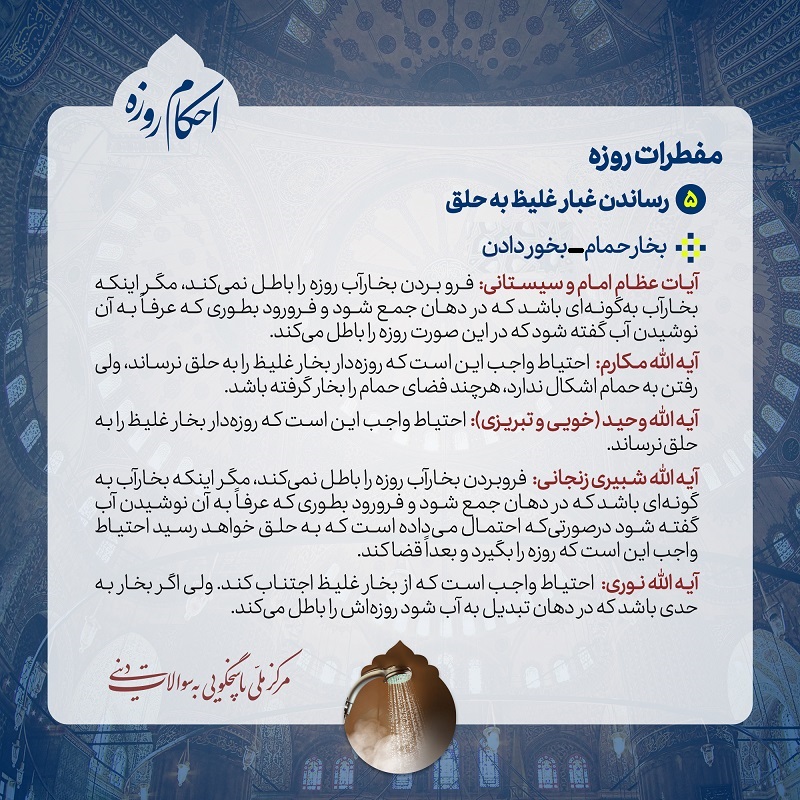 احکام روزه
مفطرات روزه
۵ رساندن غبار غلیظ به حلق
بخار حمام_بخور دادن
آیات عظام امام و سیستانی: فرو بردن بخارآب روزه را باطل نمی‌کند، مگر اینکه
بخارآب به‌گونه‌ای باشد که در دهان جمع شود و فرورود بطوری که عرفاً به آن
نوشیدن آب گفته شود که در این صورت روزه را باطل می‌کند.
آیه الله مکارم: احتیاط واجب این است که روزه‌دار بخار غلیظ را به حلق نرساند، ولی
رفتن به حمام اشکال ندارد، هرچند فضای حمام را بخار گرفته باشد.
آیه الله وحید (خویی و تبریزی): احتیاط واجب این است که روزه‌دار بخار غلیظ را به
حلق نرساند.
آیه الله شبیری زنجانی: فروبردن بخارآب روزه را باطل نمی‌کند، مگر اینکه بخارآب به
گونه‌ای باشد که در دهان جمع شود و فرورود بطوری که عرفاً به آن نوشیدن آب
گفته شود درصورتی‌که احتمال می‌داده است که به حلق خواهد رسید احتیاط
واجب این است که روزه را بگیرد و بعداً قضا کند.
آیه الله نوری: احتیاط واجب است که از بخار غلیظ اجتناب کند. ولی اگر بخار به
حدی باشد که در دهان تبدیل به آب شود روزه‌اش را باطل می‌کند.
مرکز ملّی پاسخگویی به سوالات دینی